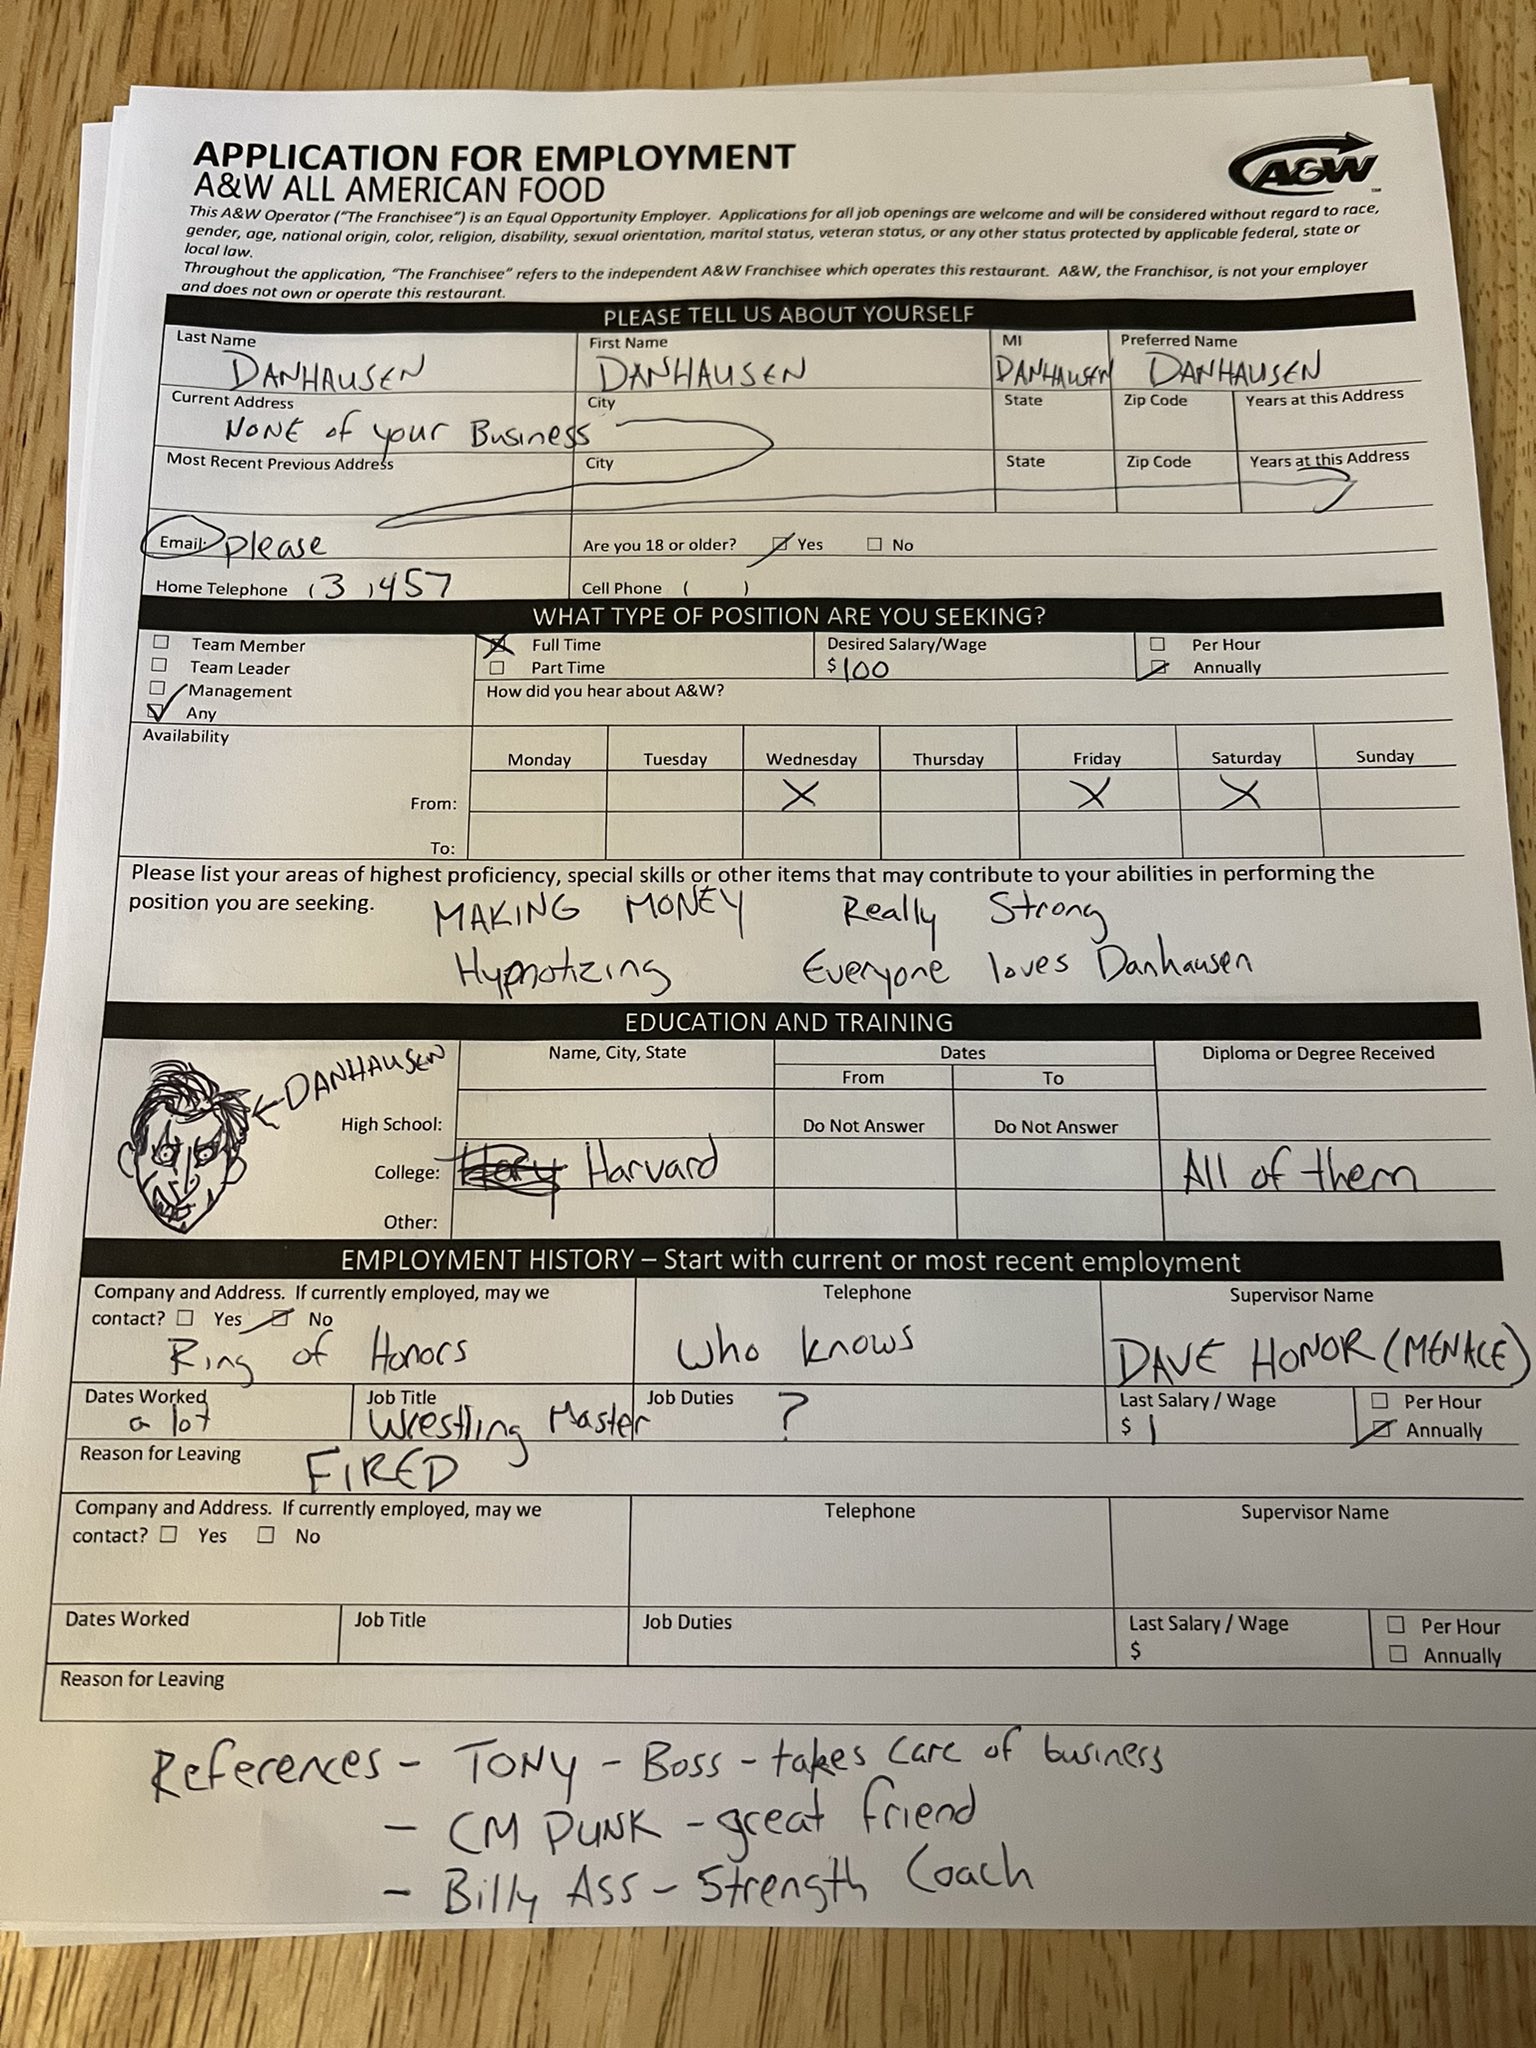 APPLICATION FOR EMPLOYMENT
A&W ALL AMERICAN FOOD
A&W
TM
This A&W Operator ("The Franchisee") is an Equal Opportunity Employer. Applications for all job openings are welcome and will be considered without regard to race,
gender, age, national origin, color, religion, disability, sexual orientation, marital status, veteran status, or any other status protected by applicable federal, state or
local law.
Throughout the application, "The Franchisee" refers to the independent A&W Franchisee which operates this restaurant. A&W, the Franchisor, is not your employer
and does not own or operate this restaurant.
PLEASE TELL US ABOUT YOURSELF
Last Name First Name MI Preferred Name
DANHAUSEN DANHAUSEN DANHAUSEN DANHAUSEN
Current Address City State Zip Code Years at this Address
NONE of your Business
Most Recent Previous Address City State Zip Code Years at this Address
Email: please Are you 18 or older? Yes No
Home Telephone (3 )457 Cell Phone ( )
WHAT TYPE OF POSITION ARE YOU SEEKING?
Team Member Full Time Desired Salary/Wage Per Hour
Team Leader Part Time $100 Annually
Management How did you hear about A&W?
Any
Availability Monday Tuesday Wednesday Thursday Friday Saturday Sunday
From: X X X
To:
Please list your areas of highest proficiency, special skills or other items that may contribute to your abilities in performing the
position you are seeking. MAKING MONEY Really Strong
Hypnotizing Everyone loves Danhausen
EDUCATION AND TRAINING
DANHAUSEN Name, City, State Dates Diploma or Degree Received
From To
High School: Do Not Answer Do Not Answer
College: Harvard All of them
Other:
EMPLOYMENT HISTORY – Start with current or most recent employment
Company and Address. If currently employed, may we Telephone Supervisor Name
contact? Yes No
Ring of Honors Who knows DAVE HONOR (MENACE)
Dates Worked Job Title Job Duties Last Salary / Wage Per Hour
a lot Wrestling Master ? $ 1 Annually
Reason for Leaving FIRED
Company and Address. If currently employed, may we Telephone Supervisor Name
contact? Yes No
Dates Worked Job Title Job Duties Last Salary / Wage Per Hour
$ Annually
Reason for Leaving
References - TONY - Boss - takes care of business
- CM PUNK - great friend
- Billy Ass - Strength Coach